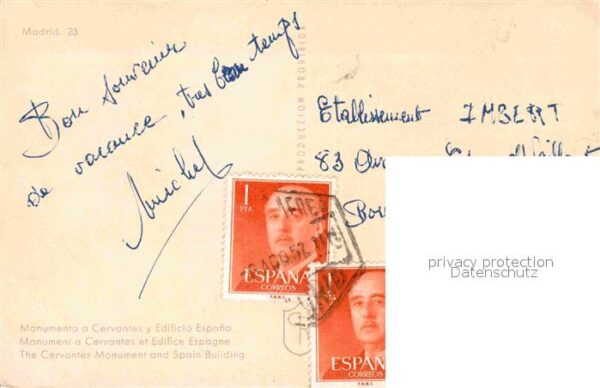 Madrid 23
Bon souvenir
de vacance, tres beau temps
Michel
PRODUCCION PROHIBIDA
Etablissement IMBERT
83
1
PTA
ESPAÑA
CORREOS
AEREA
AGO 57
1
PTA
ESPAÑA
CORREOS
Monumento a Cervantes y Edificio España
Monument a Cervantes et Edifice Espagne
The Cervantes Monument and Spain Building
privacy protection
Datenschutz